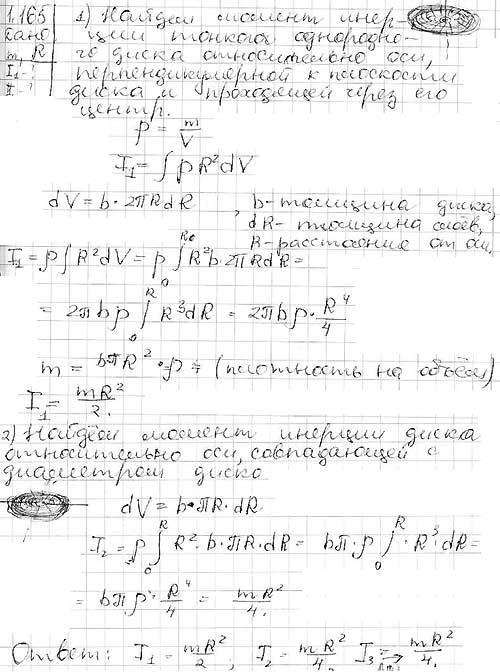 1.165
Дано
m, R
I₁ - ?
I - ?
1) Найдём момент инер-
ции тонкого однородно-
го диска относительно оси,
перпендикулярной к плоскости
диска и проходящей через его
центр.
ρ = m/V
I₁ = ∫ρR²dV
dV = b · 2πRdR , b - толщина диска,
dR - толщина слоёв,
R - расстояние от оси.
I₁ = ρ∫R²dV = ρ∫₀^R₀ R²b · 2πRdR =
= 2πbρ∫₀^R R³dR = 2πbρ · R⁴/4
m = bπR² · ρ (плотность на объём)
I₁ = mR²/2.
2) Найдём момент инерции диска
относительно оси, совпадающей с
диаметром диска
dV = b · πR · dR
I₂ = ρ∫₀^R R² · b · πR · dR = bπ · ρ∫₀^R · R³ · dR =
= bπρ · R⁴/4 = mR²/4.
Ответ: I₁ = mR²/2 ; I₂ = mR²/4. I₃ = mR²/4.